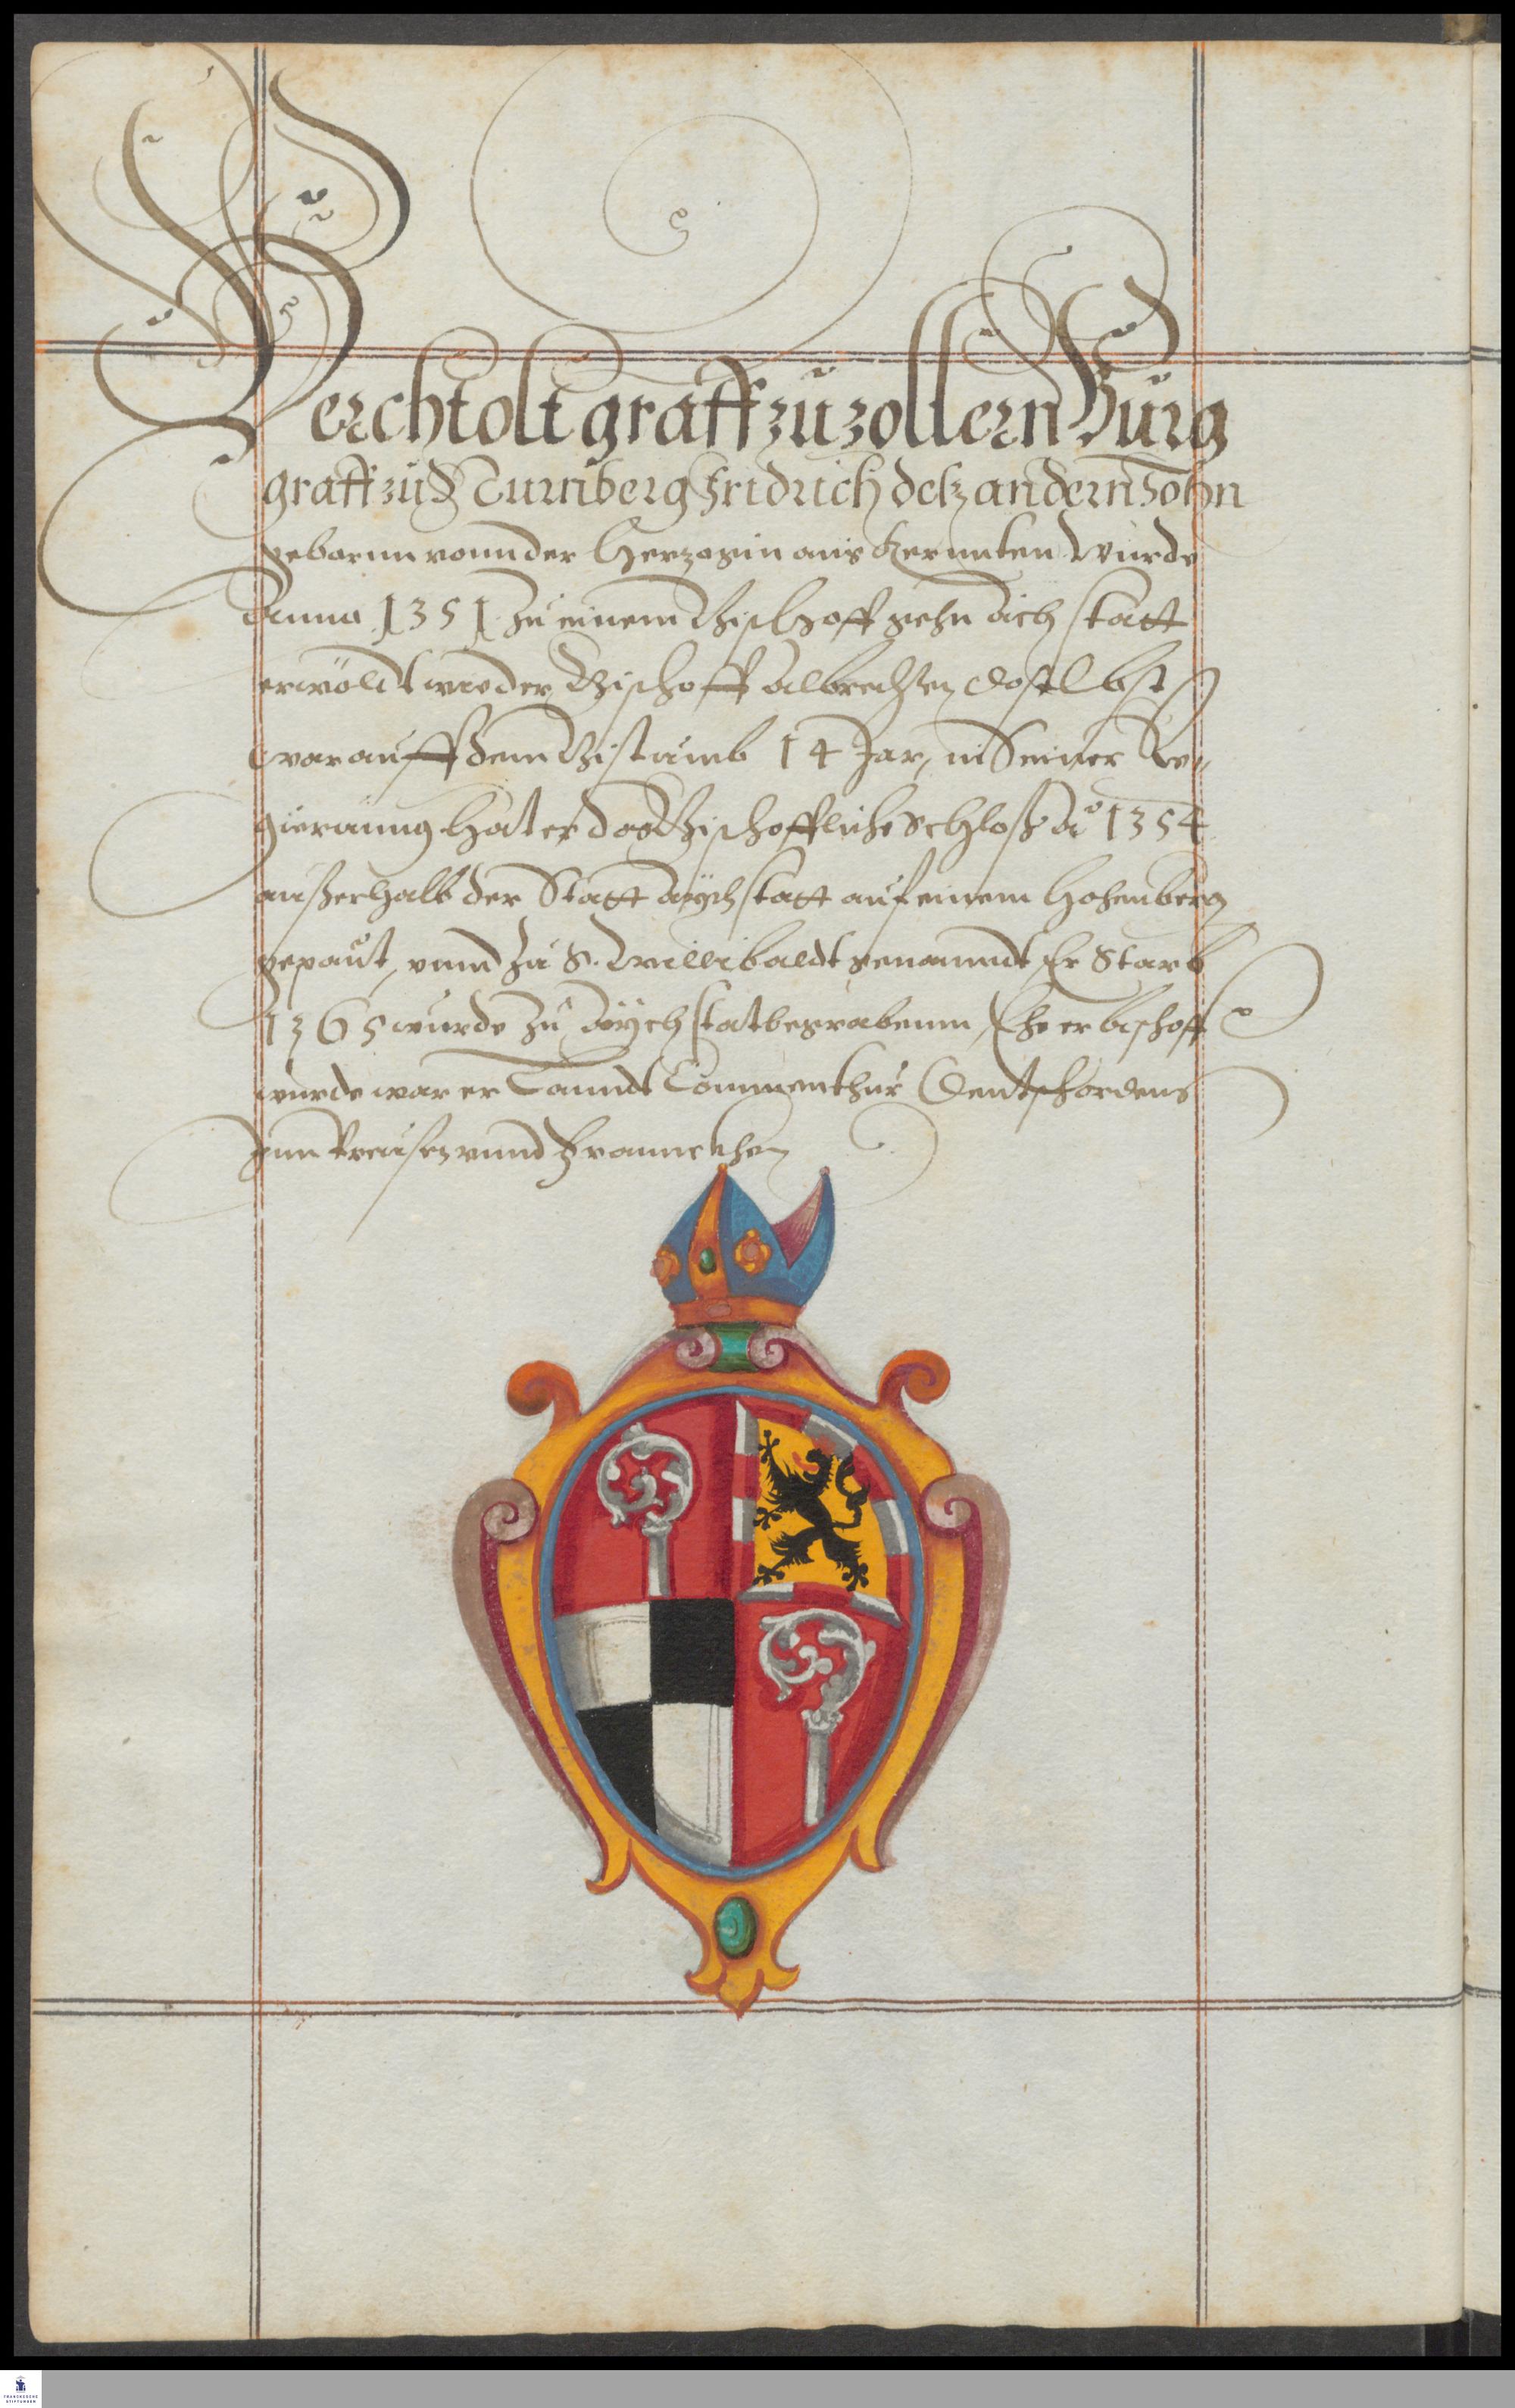 Berchtolt graff zu zollern Burg
graff zu Nurnberg Fridrich detz andern Sohn
gebornn vonn der Hertzogin aus Kernnten wurde
Anno 1351 Zu einem Bischoff gehn Aichstatt
erwöldt wieder Bischoff Albrechten doselbst
war auff dem Bistumb 14 Jar, in Seiner Re-
gierunng hat er das Bischoffliche Schloß Ao 1354
außerhalb der Statt Aÿchstatt auf einem Hohenberg
gepaut, vnnd Zu S. Willibaldt genanndt Er Starb
1365 wurde Zu Aÿchstat begrabenn, Ehe er bischoff
wurde war er Lanndt Commenthur Deutschordens
Jnn Preusen vnnd Frannckhen
FRANCKESCHE
STIFTUNGEN